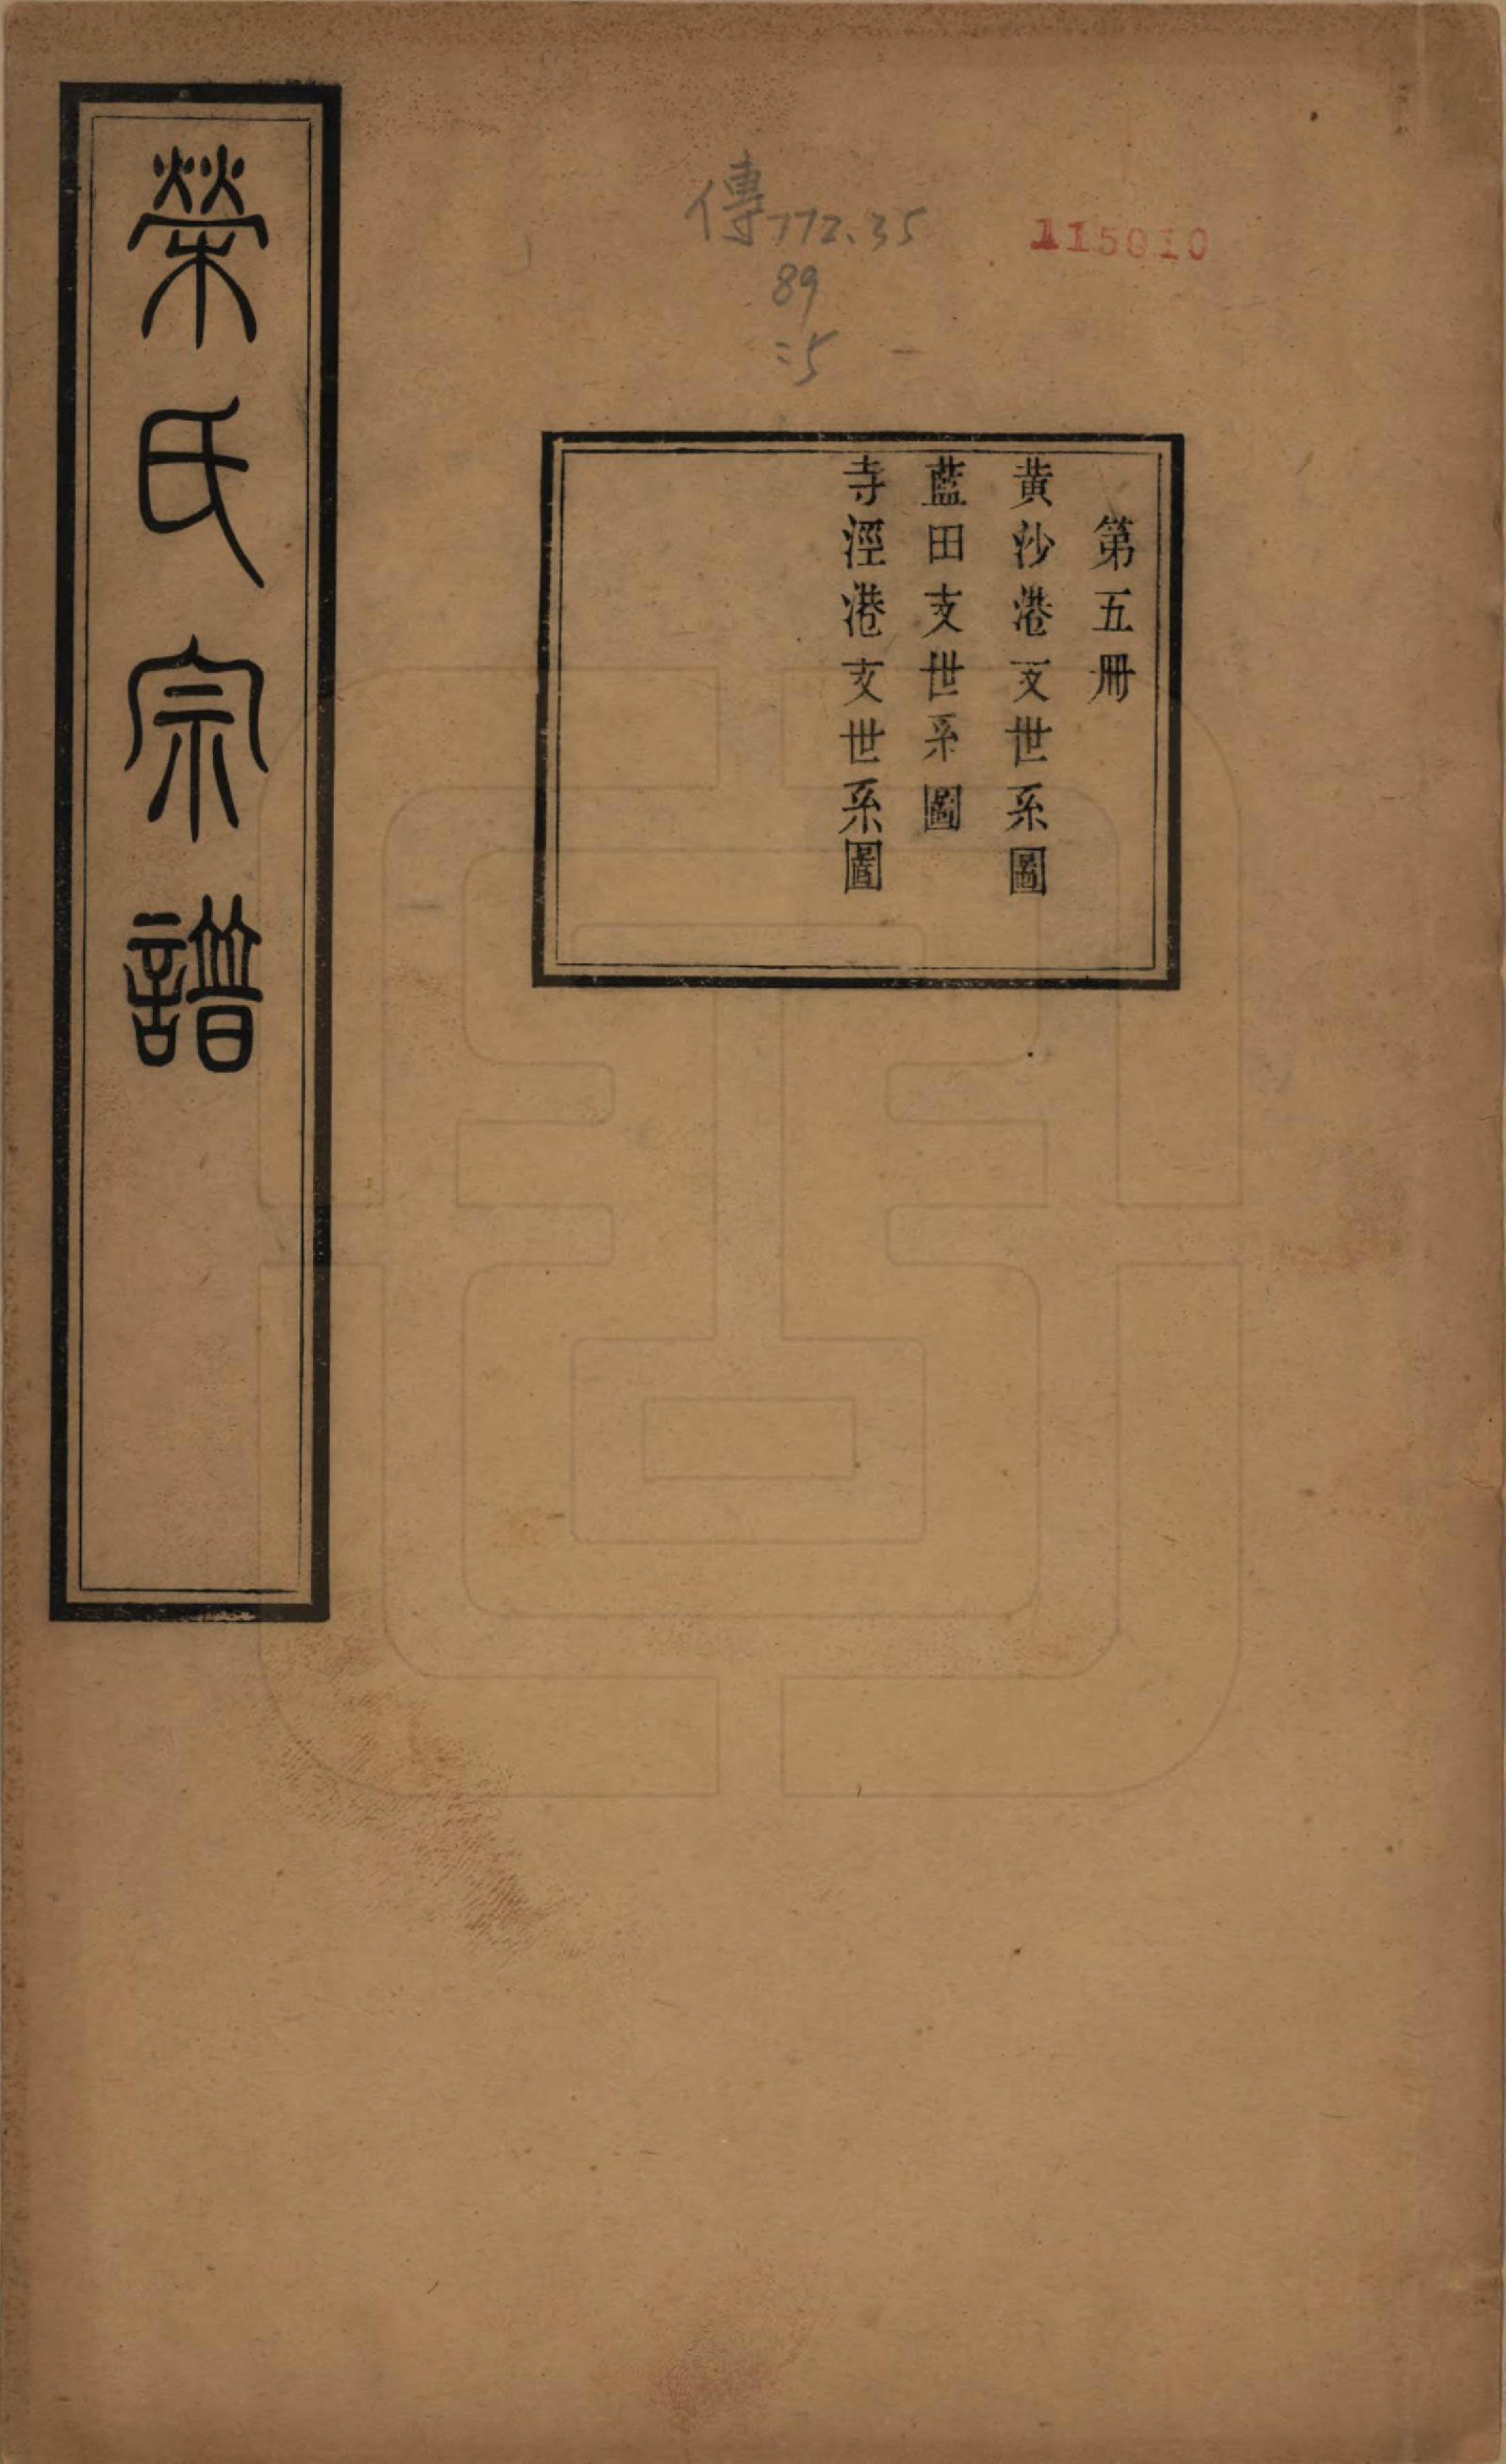 傳772.35
89
:5
115010
第五冊
黄沙港支世系圖
藍田支世系圖
寺涇港支世系圖
榮氏宗譜